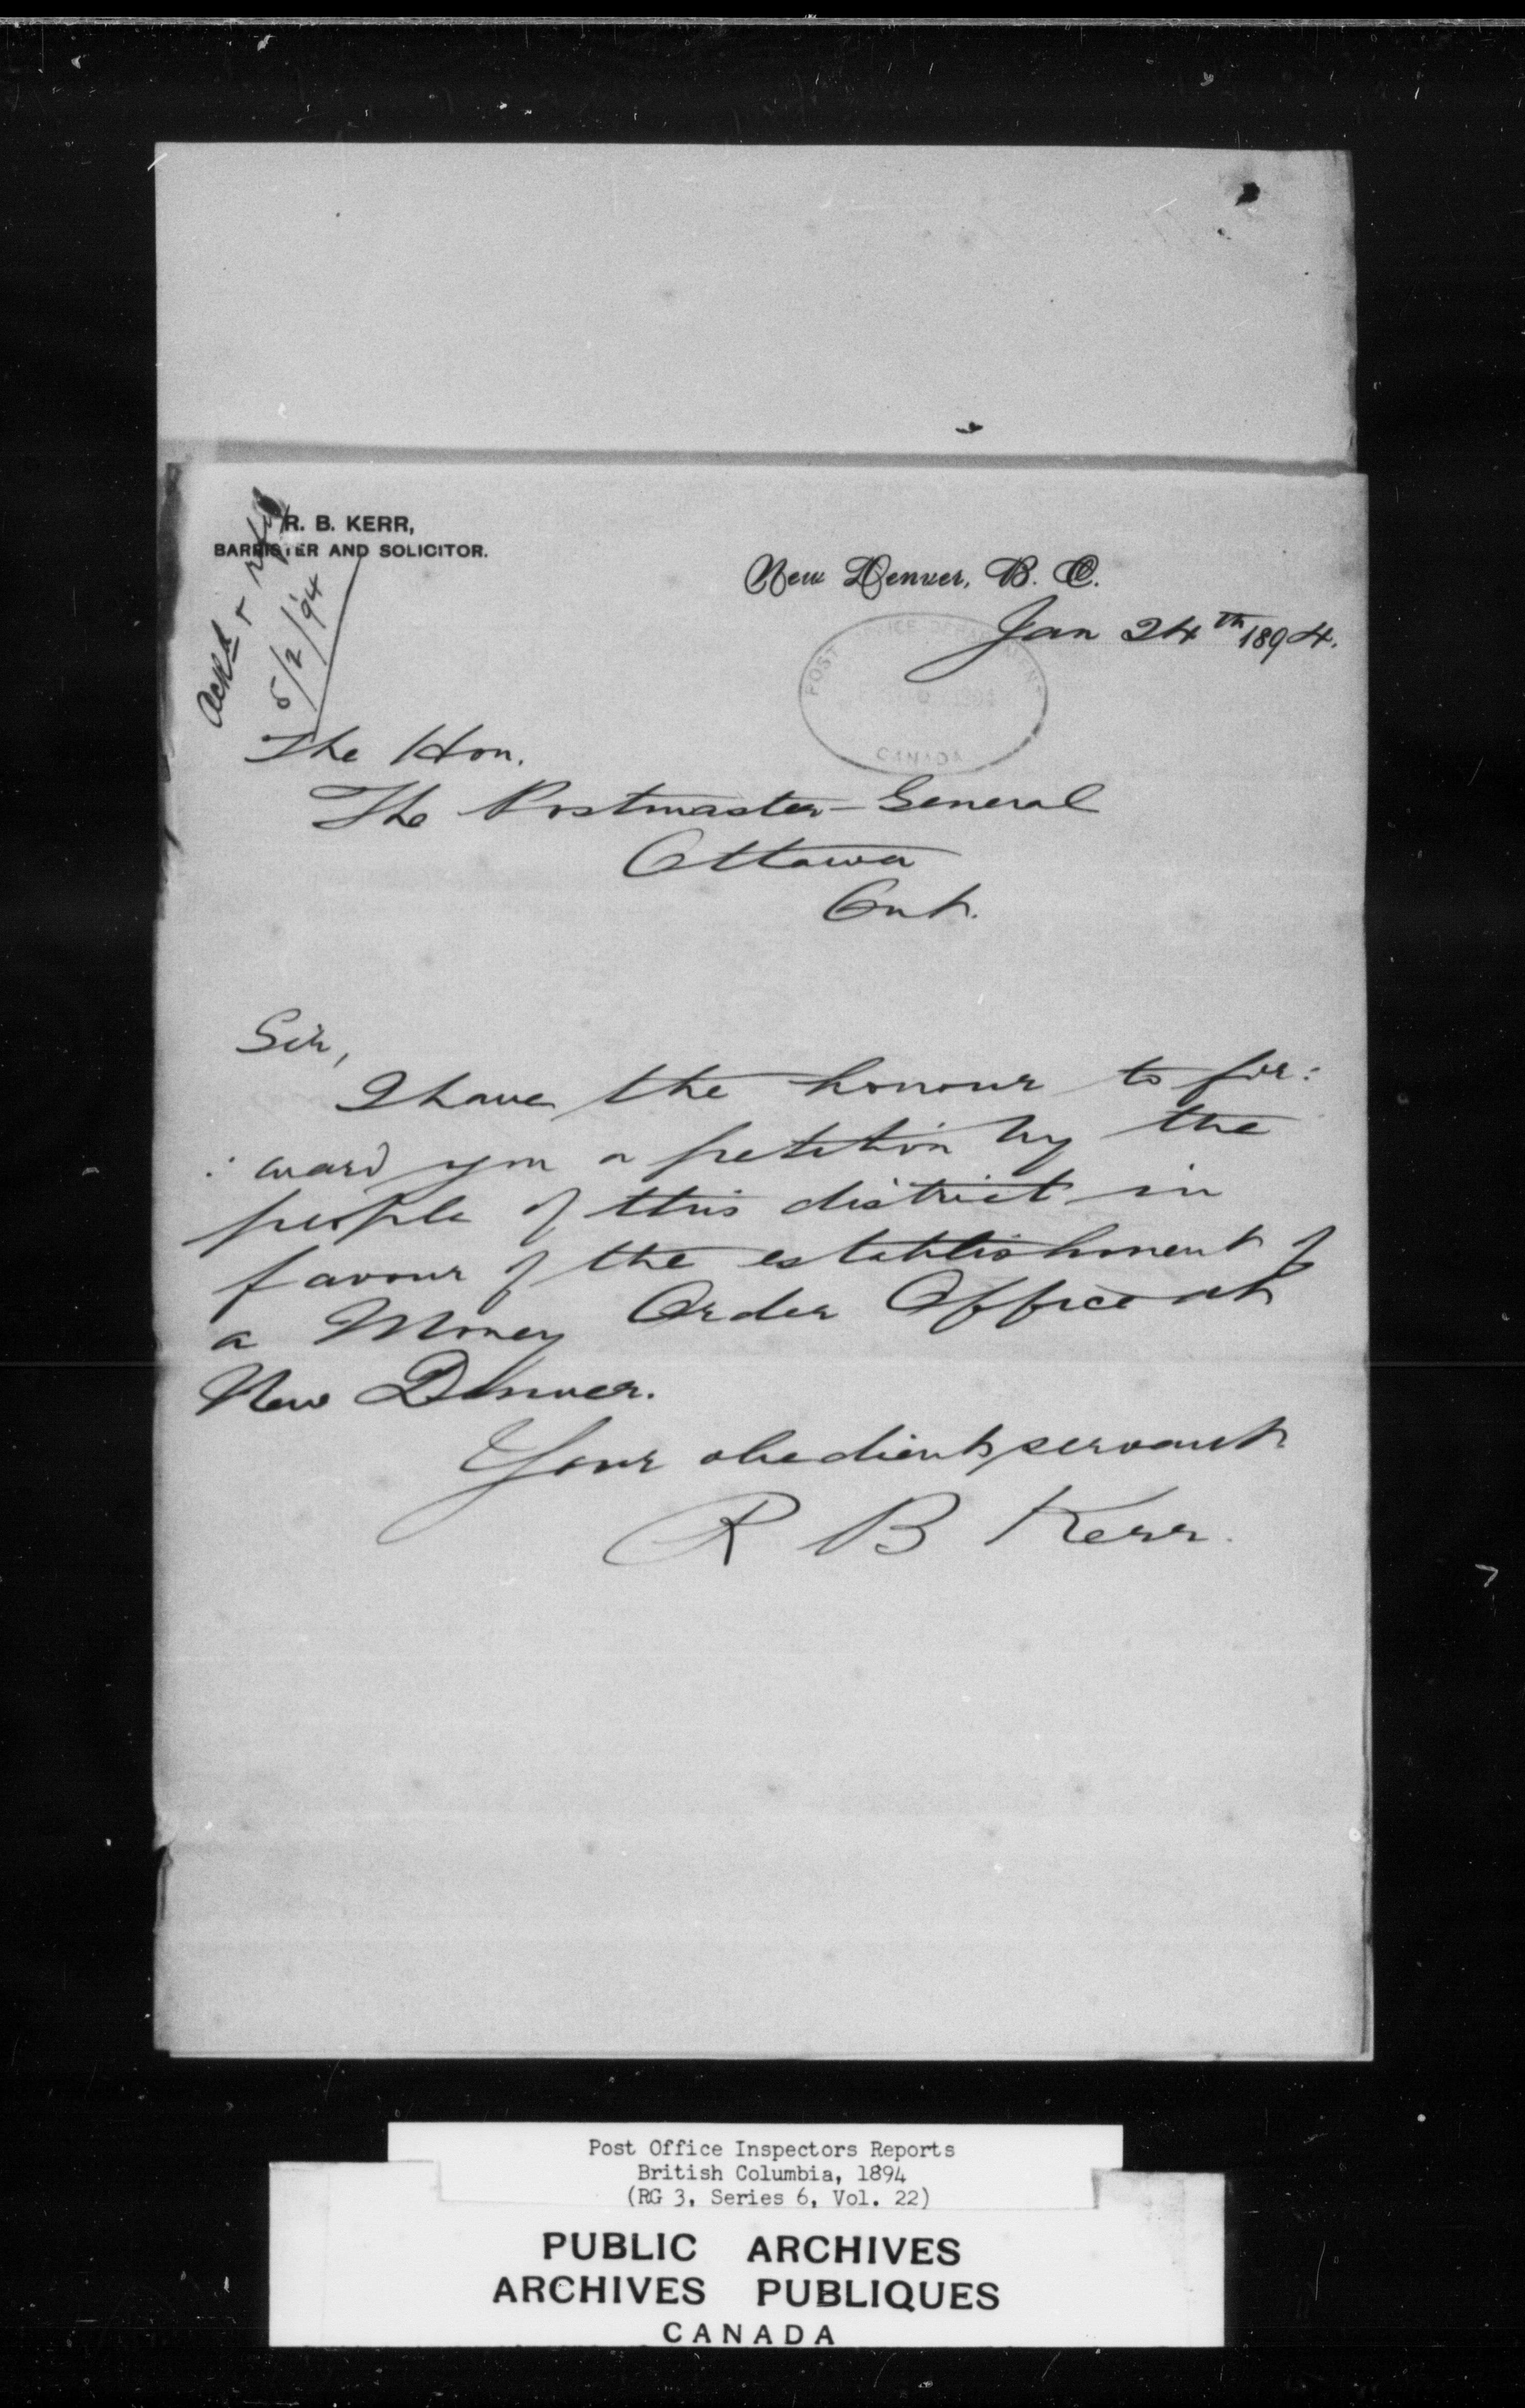 R. B. KERR,
BARRISTER AND SOLICITOR.
Ackd &
5/2/94
New Denver, B. C.
Jan 24th 1894.
POST OFFICE DEPARTMENT
CANADA
The Hon.
The Postmaster-General
Ottawa
Ont.
Sir,
I have the honour to for:
: ward you a petition by the
people of this district in
favour of the establishment of
a Money Order Office at
New Denver.
Your obedient servant
R B Kerr.
Post Office Inspectors Reports
British Columbia, 1894
(RG 3, Series 6, Vol. 22)
PUBLIC ARCHIVES
ARCHIVES PUBLIQUES
CANADA